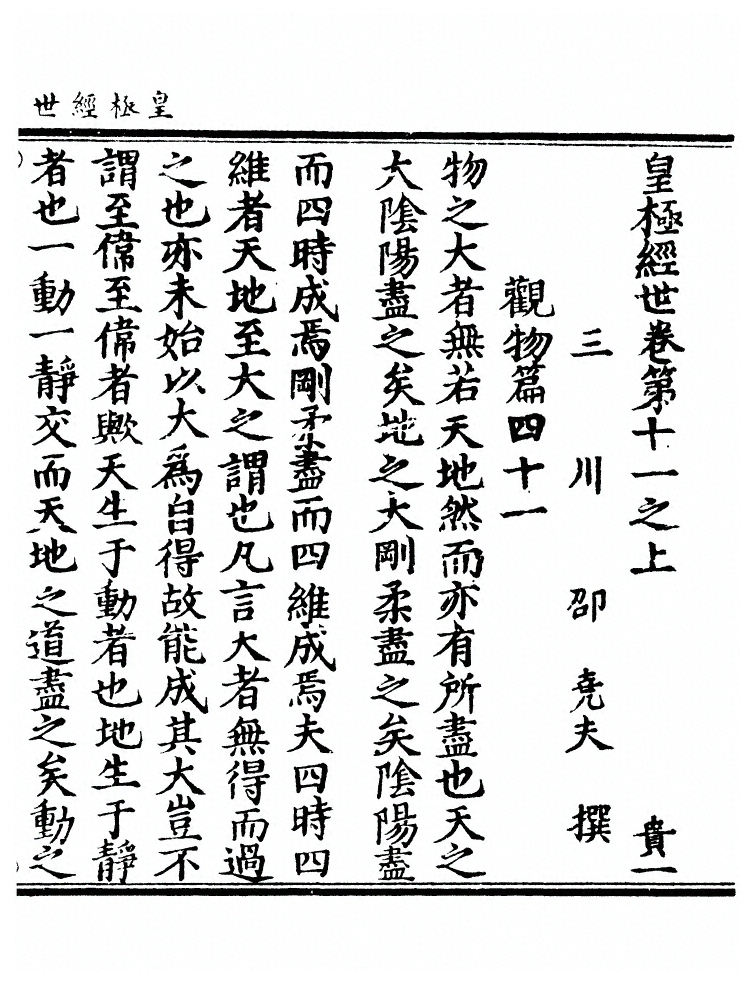 皇極經世
皇極經世卷第十一之上　貴一
三川　邵　堯夫　撰
觀物篇四十一
物之大者無若天地然而亦有所盡也天之
大陰陽盡之矣地之大剛柔盡之矣陰陽盡
而四時成焉剛柔盡而四維成焉夫四時四
維者天地至大之謂也凡言大者無得而過
之也亦未始以大為自得故能成其大豈不
謂至偉至偉者歟天生于動者也地生于靜
者也一動一靜交而天地之道盡之矣動之